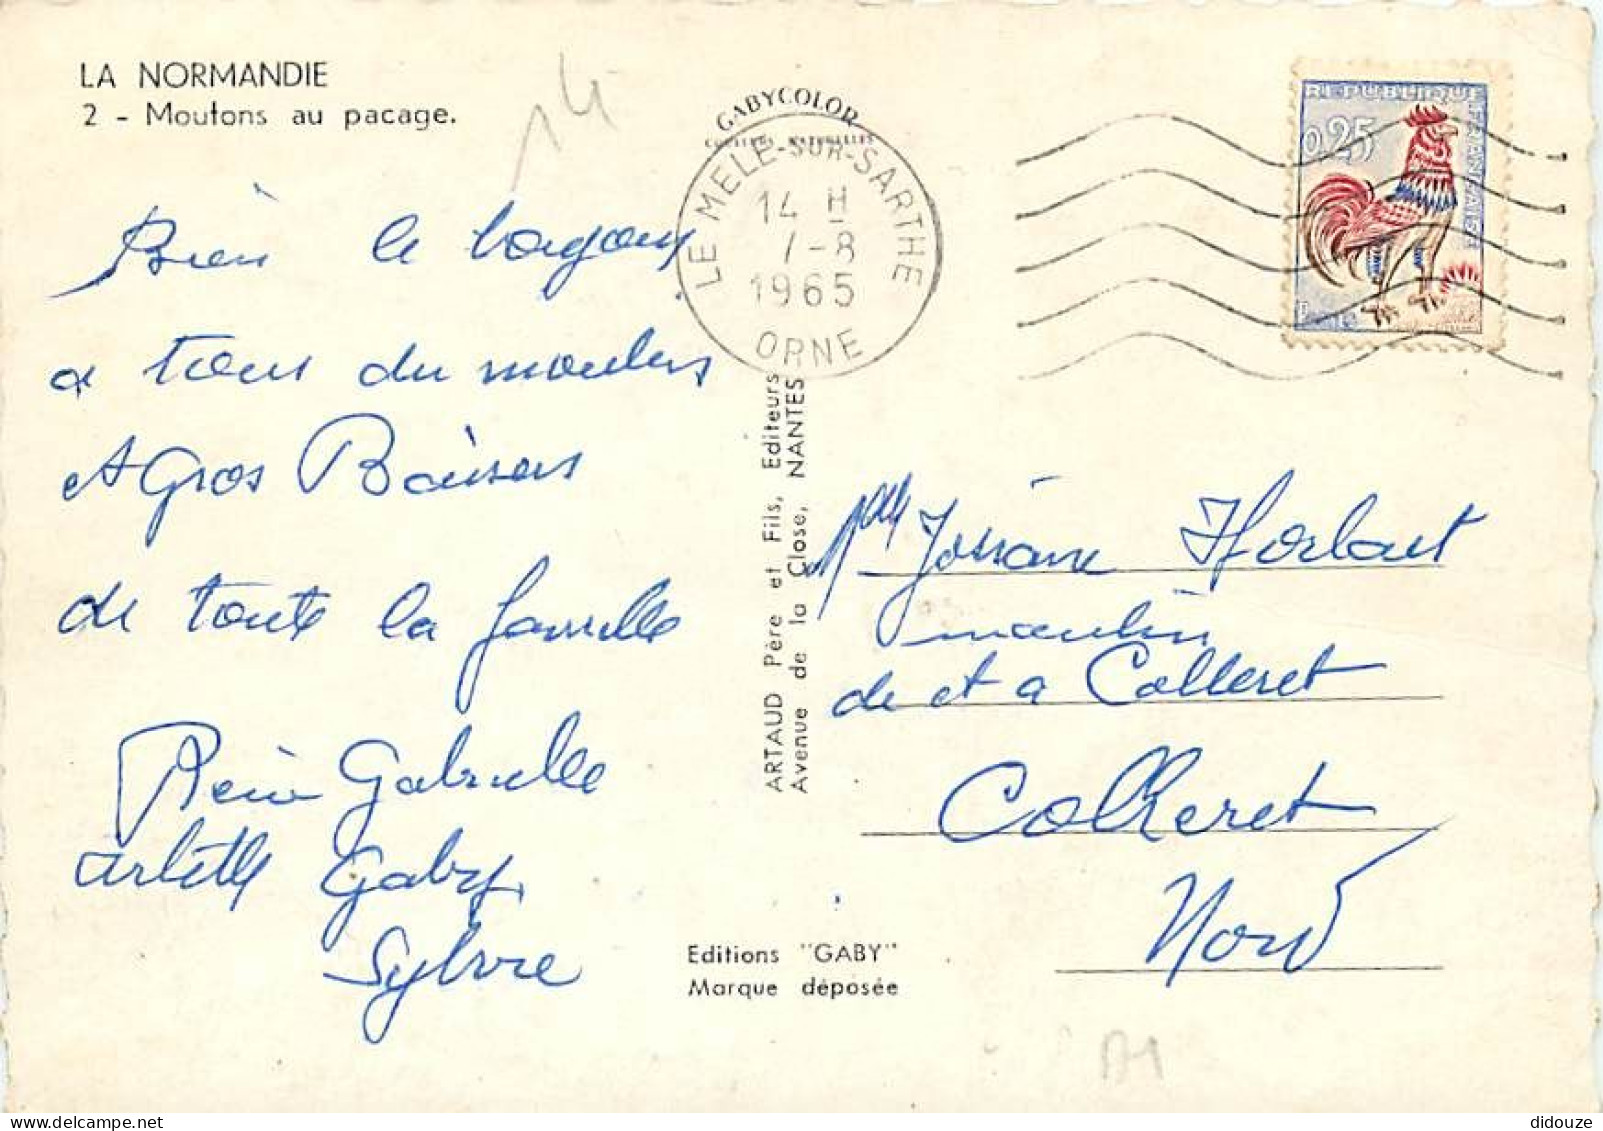 LA NORMANDIE
2 - Moutons au pacage.
14
GABYCOLOR
COULEURS NATURELLES
LE MELE-SUR-SARTHE
14 H
7-8
1965
ORNE
REPUBLIQUE FRANÇAISE
0,25
Bien le
a tous du moulin
et Gros Baisers
de toute la famille
Gabrielle
Arlette Gaby
Sylvie
ARTAUD Père et Fils, Editeurs
Avenue de la Close, NANTES
Editions "GABY"
Marque déposée
Mlle Josiane
moulin
de et a Colleret
Colleret
Nord
didouze